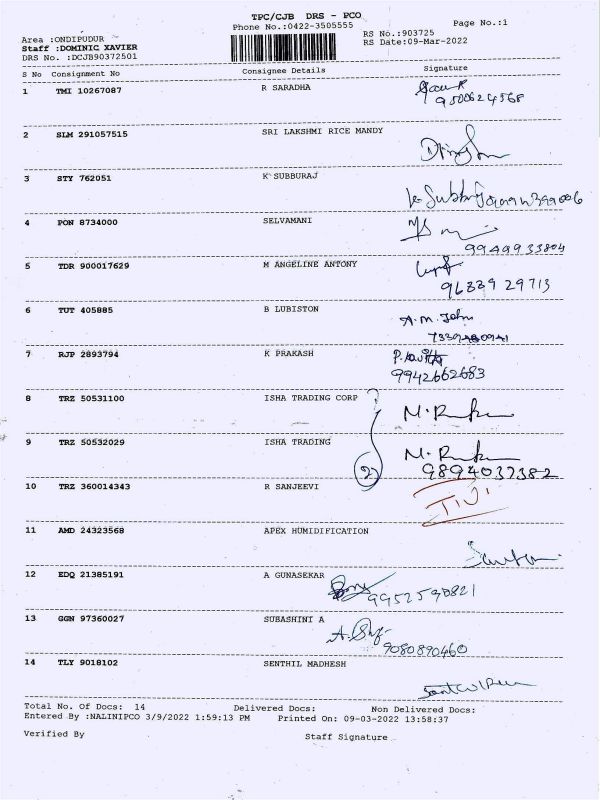 TPC/CJB DRS - PCO
Phone No.:0422-3505555
Page No.:1
Area :ONDIPUDUR
RS No.:903725
Staff :DOMINIC XAVIER
RS Date:09-Mar-2022
DRS No. :DCJB90372501
S No Consignment No Consignee Details Signature
1 TMI 10267087 R SARADHA
9500624568
2 SLM 291057515 SRI LAKSHMI RICE MANDY
3 STY 762051 K SUBBURAJ
4 PON 8734000 SELVAMANI
9949933804
5 TDR 900017629 M ANGELINE ANTONY
96889 29713
6 TUT 405885 B LUBISTON
A.M. John
7 RJP 2893794 K PRAKASH
9942662683
8 TRZ 50531100 ISHA TRADING CORP
9 TRZ 50532029 ISHA TRADING
2
9894037382
10 TRZ 360014343 R SANJEEVI
11 AMD 24323568 APEX HUMIDIFICATION
12 EDQ 21385191 A GUNASEKAR
9952590821
13 GGN 97360027 SUBASHINI A
9080890460
14 TLY 9018102 SENTHIL MADHESH
Total No. Of Docs: 14 Delivered Docs: Non Delivered Docs:
Entered By :NALINIPCO 3/9/2022 1:59:13 PM Printed On: 09-03-2022 13:58:37
Verified By Staff Signature